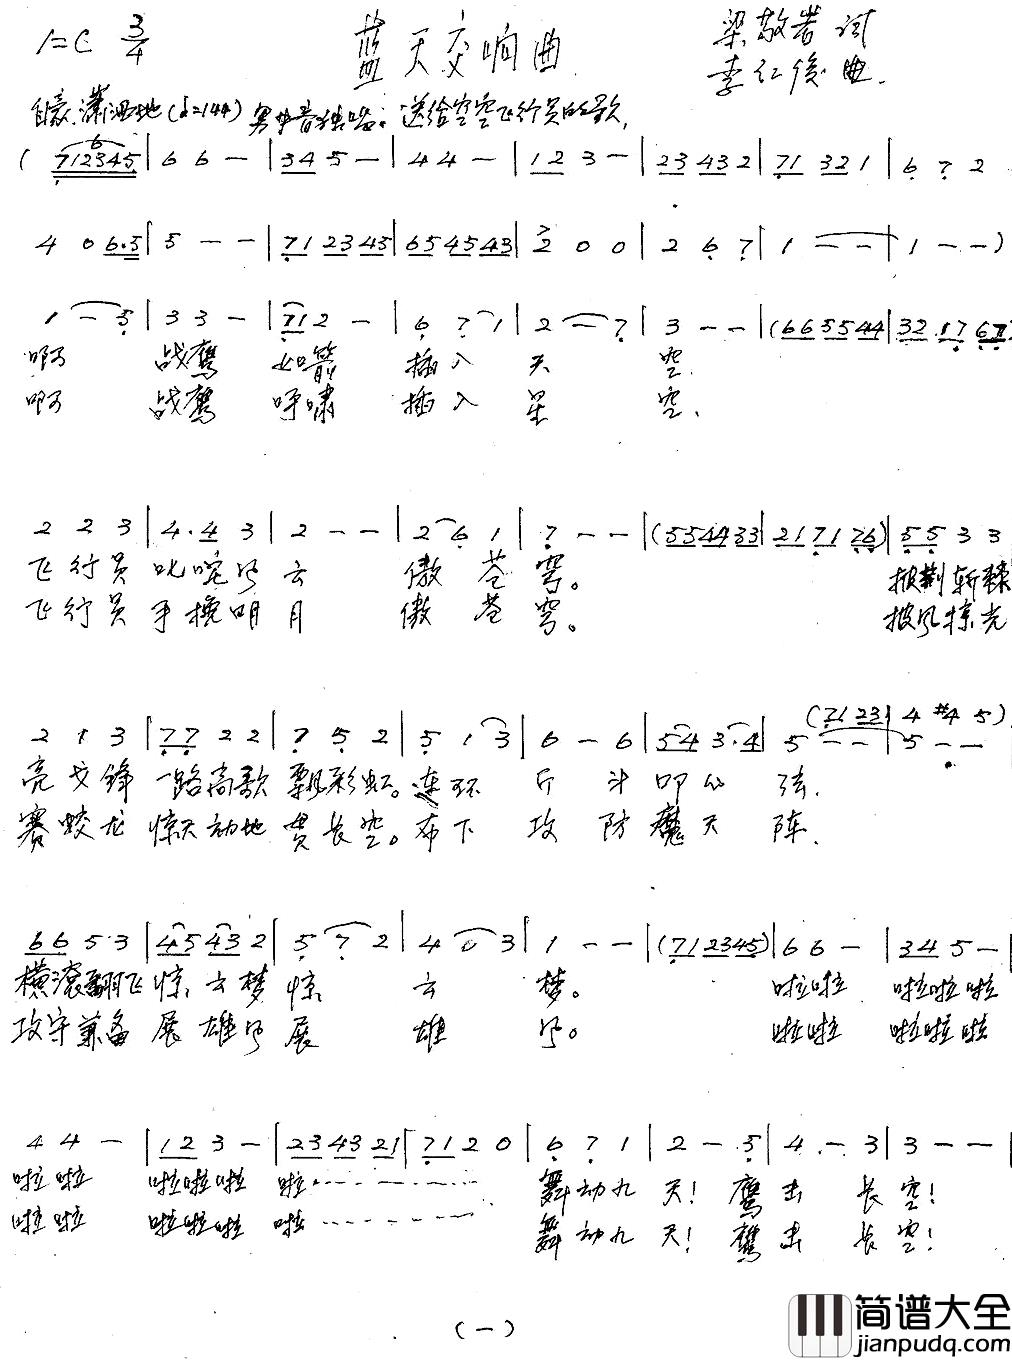 1=C 3/4 蓝天交响曲 梁敬岩 词
李红俊 曲
自豪.潇洒地(♩=144) 男中音独唱: 送给空空飞行员的歌,
( 712345 | 6 6 — | 34 5 — | 4 4 — | 12 3 — | 23 43 2 | 71 32 1 | 6 7 2
4 0 6.5 | 5 — — | 71 23 43 | 65 45 43 | 2 0 0 | 2 6 7 | 1 — — | 1 — — )
1 — 5 | 3 3 — | 71 2 — | 6 7 1 | 2 — 7 | 3 — — | (66 55 44 | 32 17 67
啊 战鹰 如箭 插入 天 空.
啊 战鹰 呼啸 插入 星 空.
2 2 3 | 4.4 3 | 2 — — | 2 6 1 | 7 — — | (55 44 33 | 21 71 76) | 55 3 3
飞行员 叱咤风云 傲苍穹。 披荆斩棘
飞行员 手挽明月 傲苍穹。 披风掠光
2 1 3 | 77 2 2 | 7 5 2 | 5 1 3 | 6 — 6 | 54 3.4 | 5 — — | 5 — —
(71 23 | 4 #4 5)
亮戈锋 一路高歌 飘彩虹。连环 斤 斗 叩心 弦.
赛蛟龙 惊天动地 贯长空。布下 攻 防 魔天 阵.
66 5 3 | 45 43 2 | 5 7 2 | 4 0 3 | 1 — — | (71 23 45) | 6 6 — | 34 5 —
横滚翻飞 惊云梦 惊 云 梦。 啦啦 啦啦啦
攻守兼备 展雄风 展 雄 风。 啦啦 啦啦啦
4 4 — | 12 3 — | 23 43 21 | 71 2 0 | 6 7 1 | 2 — 5 | 4 — 3 | 3 — —
啦啦 啦啦啦 啦………… 舞动九 天! 鹰击 长 空!
啦啦 啦啦啦 啦………… 舞动九 天! 鹰击 长 空!
(一)
简谱大全
jianpudq.com